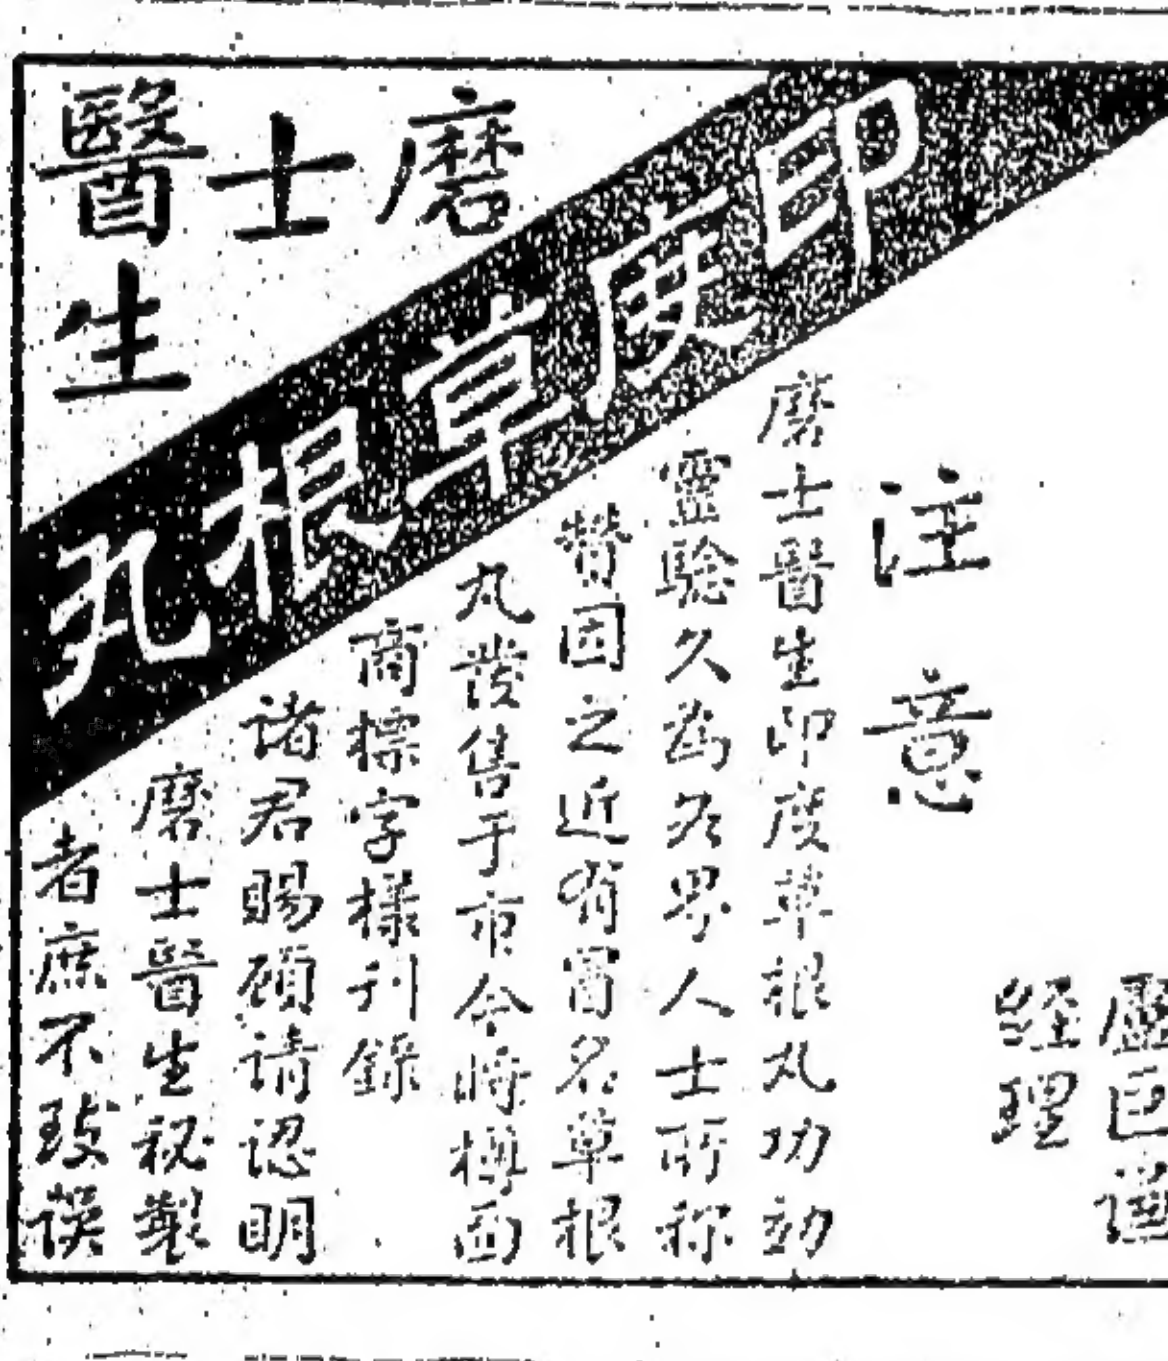 磨士醫生
印度草根丸
注意
磨士醫生印度草根丸功効
靈驗久為各界人士所称
賛固之近有冒名草根
丸發售于市今將樽面
商標字樣刊錄
諸君賜顧請認明
磨士醫生秘製
者庶不致誤
經理